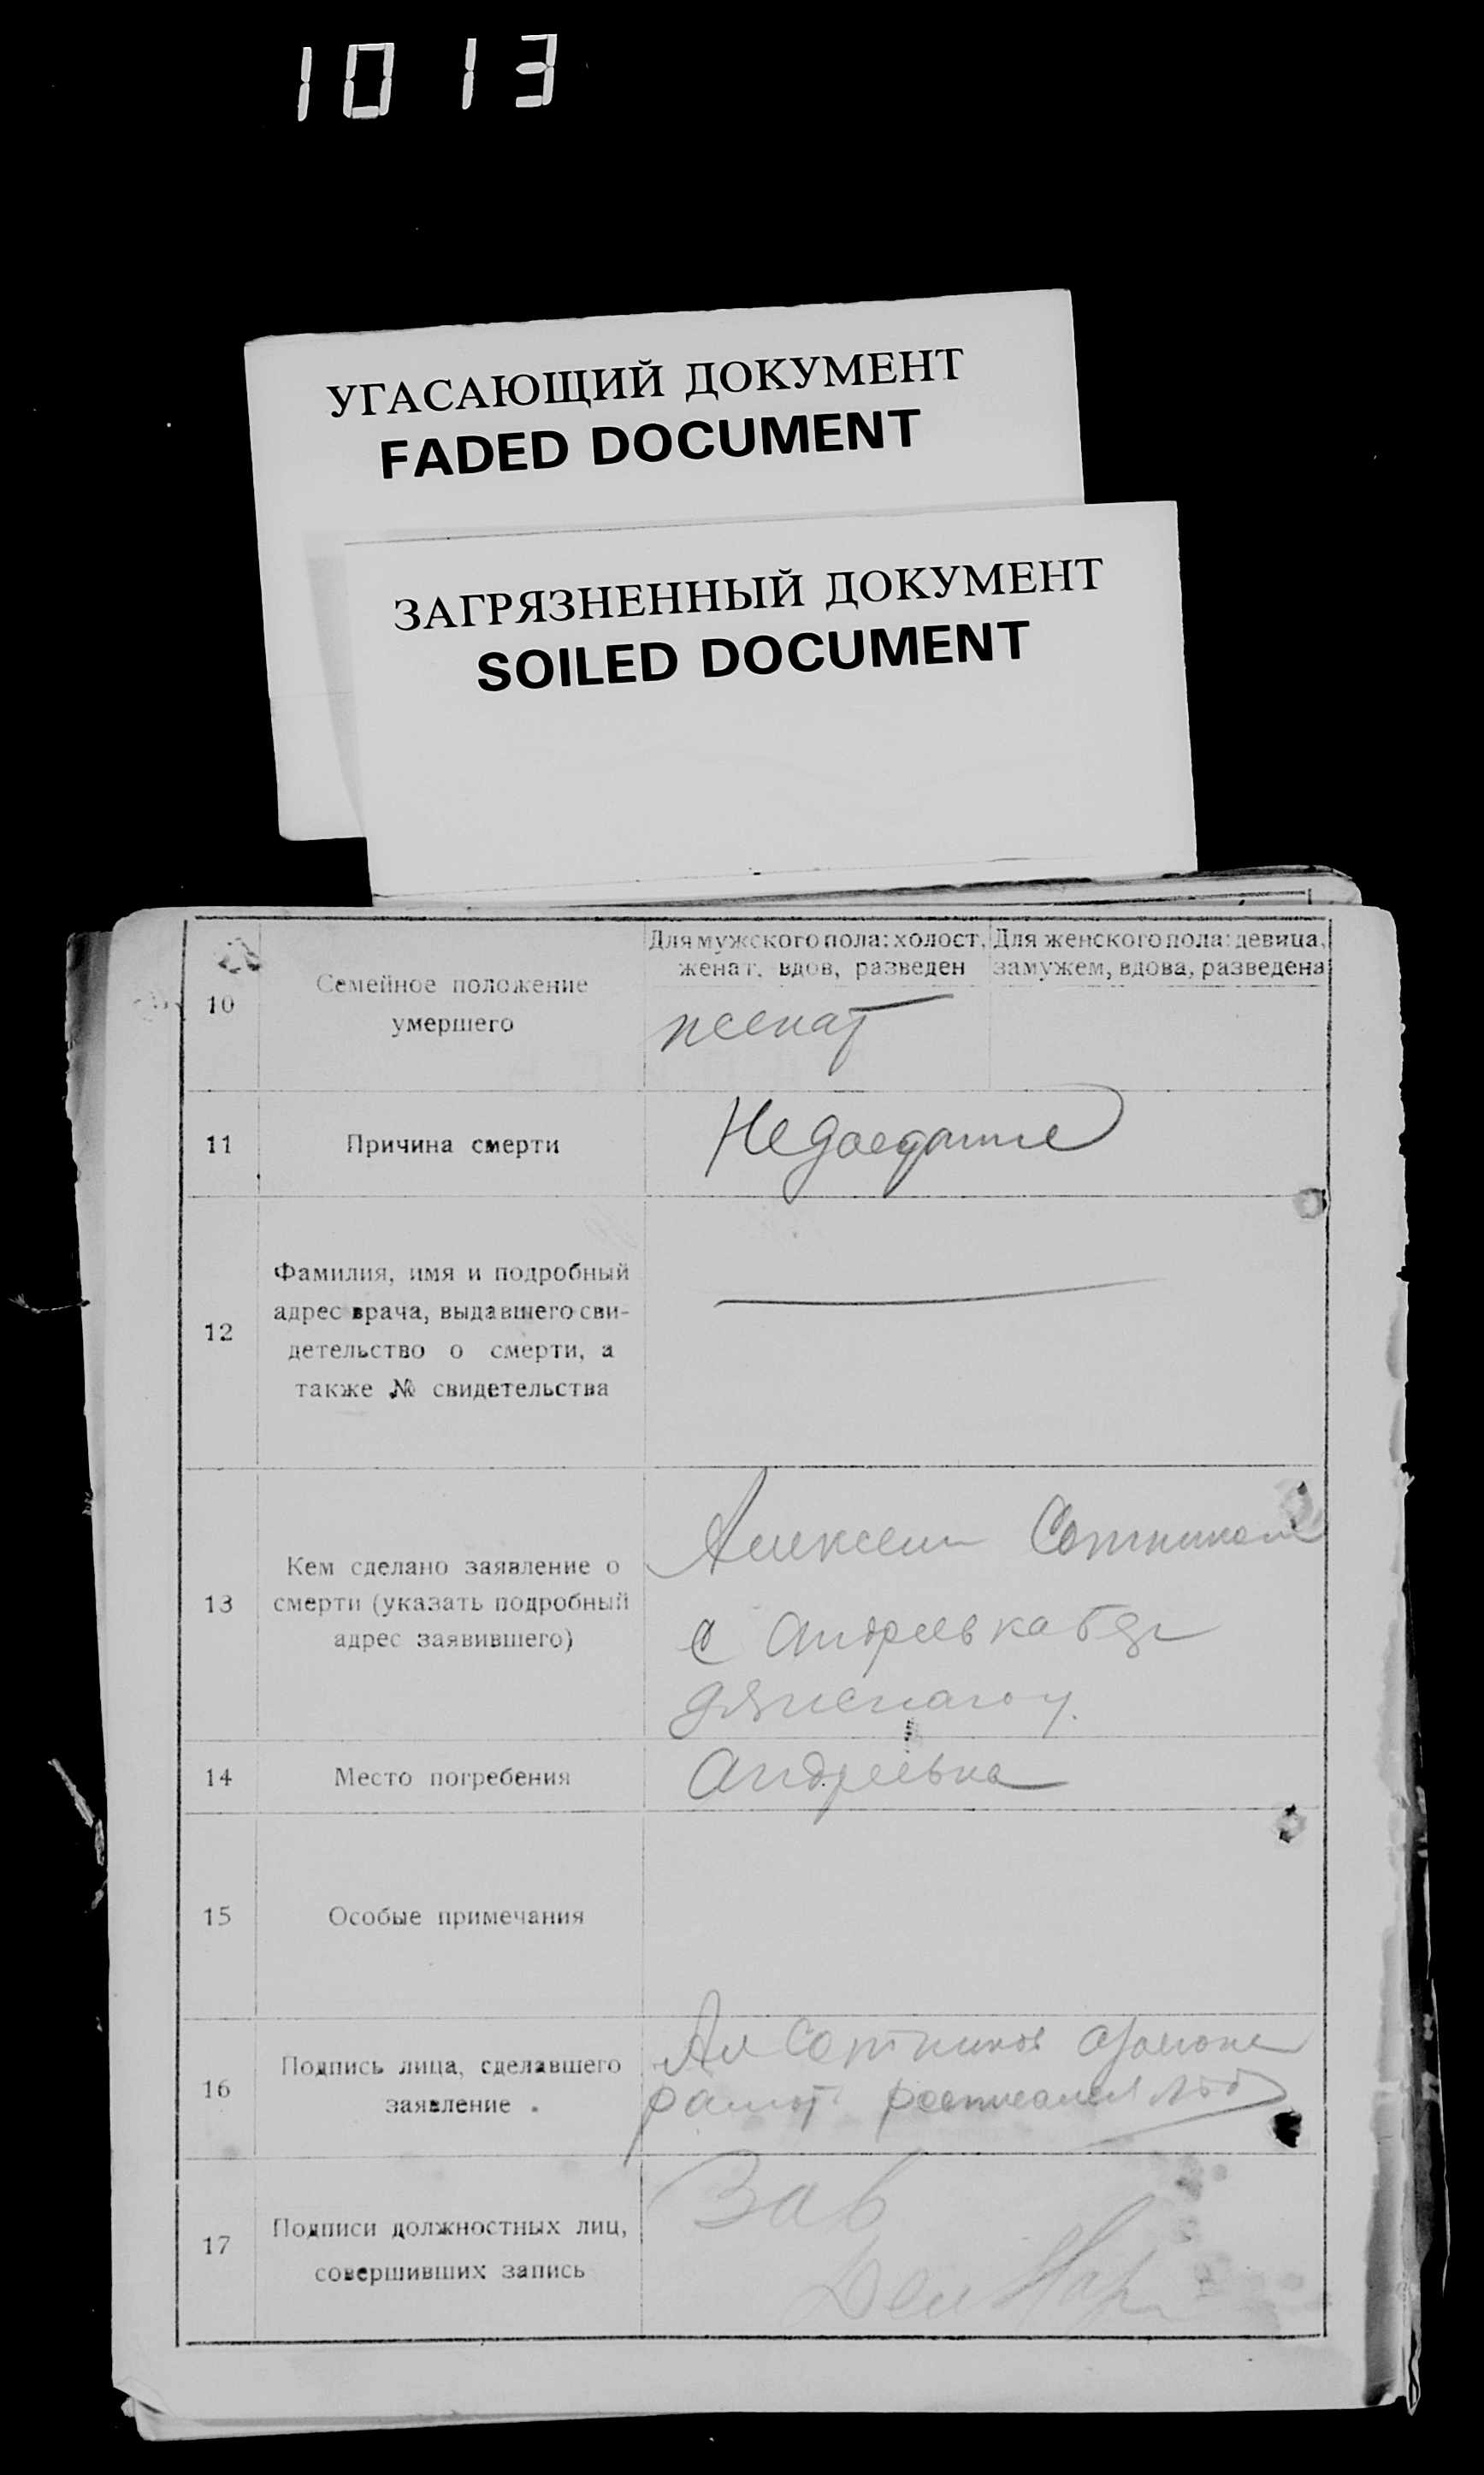 1013
УГАСАЮЩИЙ ДОКУМЕНТ
FADED DOCUMENT
ЗАГРЯЗНЕННЫЙ ДОКУМЕНТ
SOILED DOCUMENT
10
Семейное положение
умершего
Для мужского пола: холост,
женат, вдов, разведен
Для женского пола: девица,
замужем, вдова, разведена
женат
11
Причина смерти
Недоедание
12
Фамилия, имя и подробный
адрес врача, выдавшего сви-
детельство о смерти, а
также № свидетельства
13
Кем сделано заявление о
смерти (указать подробный
адрес заявившего)
Алексей Сотников
с Андреевка
14
Место погребения
Андреевка
15
Особые примечания
16
Подпись лица, сделавшего
заявление.
Ал Сотников
17
Подписи должностных лиц,
совершивших запись
Зав